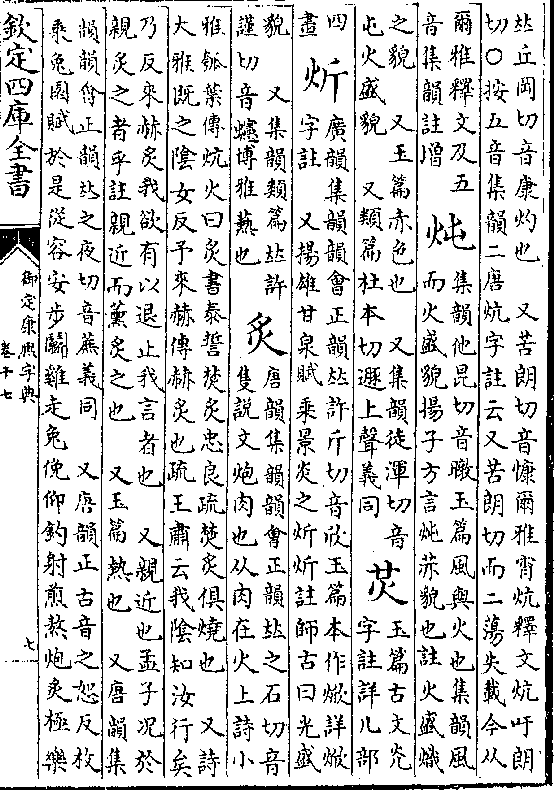 𠀤丘岡切音康灼也　又苦朗切音慷爾雅宵炕釋文炕吁朗
切○按五音集韻二唐炕字註云又苦朗切而二蕩失載今從
爾雅釋文及五
音集韻註增
炖
集韻他昆切音暾玉篇風與火也集韻風
而火盛貌揚子方言炖䒟貌也註火盛熾
之貌　又玉篇赤色也　又集韻徒渾切音
屯火盛貌　又類篇杜本切遯上聲義同
炗
玉篇古文光
字註詳儿部
四
畫
炘
廣韻集韻韻會正韻𠀤許斤切音欣玉篇本作焮詳焮
字註　又揚雄甘泉賦乘景炎之炘炘註師古曰光盛
貌　又集韻類篇𠀤許
謹切音博雅爇也
炙
唐韻集韻韻會正韻𠀤之石切音
隻說文炮肉也从肉在火上詩小
雅瓠葉傳炕火曰炙書泰誓焚炙忠良疏焚炙俱燒也　又詩
大雅既之陰女反予來赫傳赫炙也疏王肅云我陰知汝行矣
乃反來赫炙我欲有以退止我言者也　又親近也孟子況於
親炙之者乎註親近而薰炙之也　又玉篇熱也　又唐韻集
韻韻會正韻𠀤之夜切音蔗義同　又唐韻正古音之恕反枚
乘兔園賦於是從容安步鬭雞走兔俛仰釣射煎熬炮炙極樂
欽定四庫全書
御定康熙字典
卷十七
七